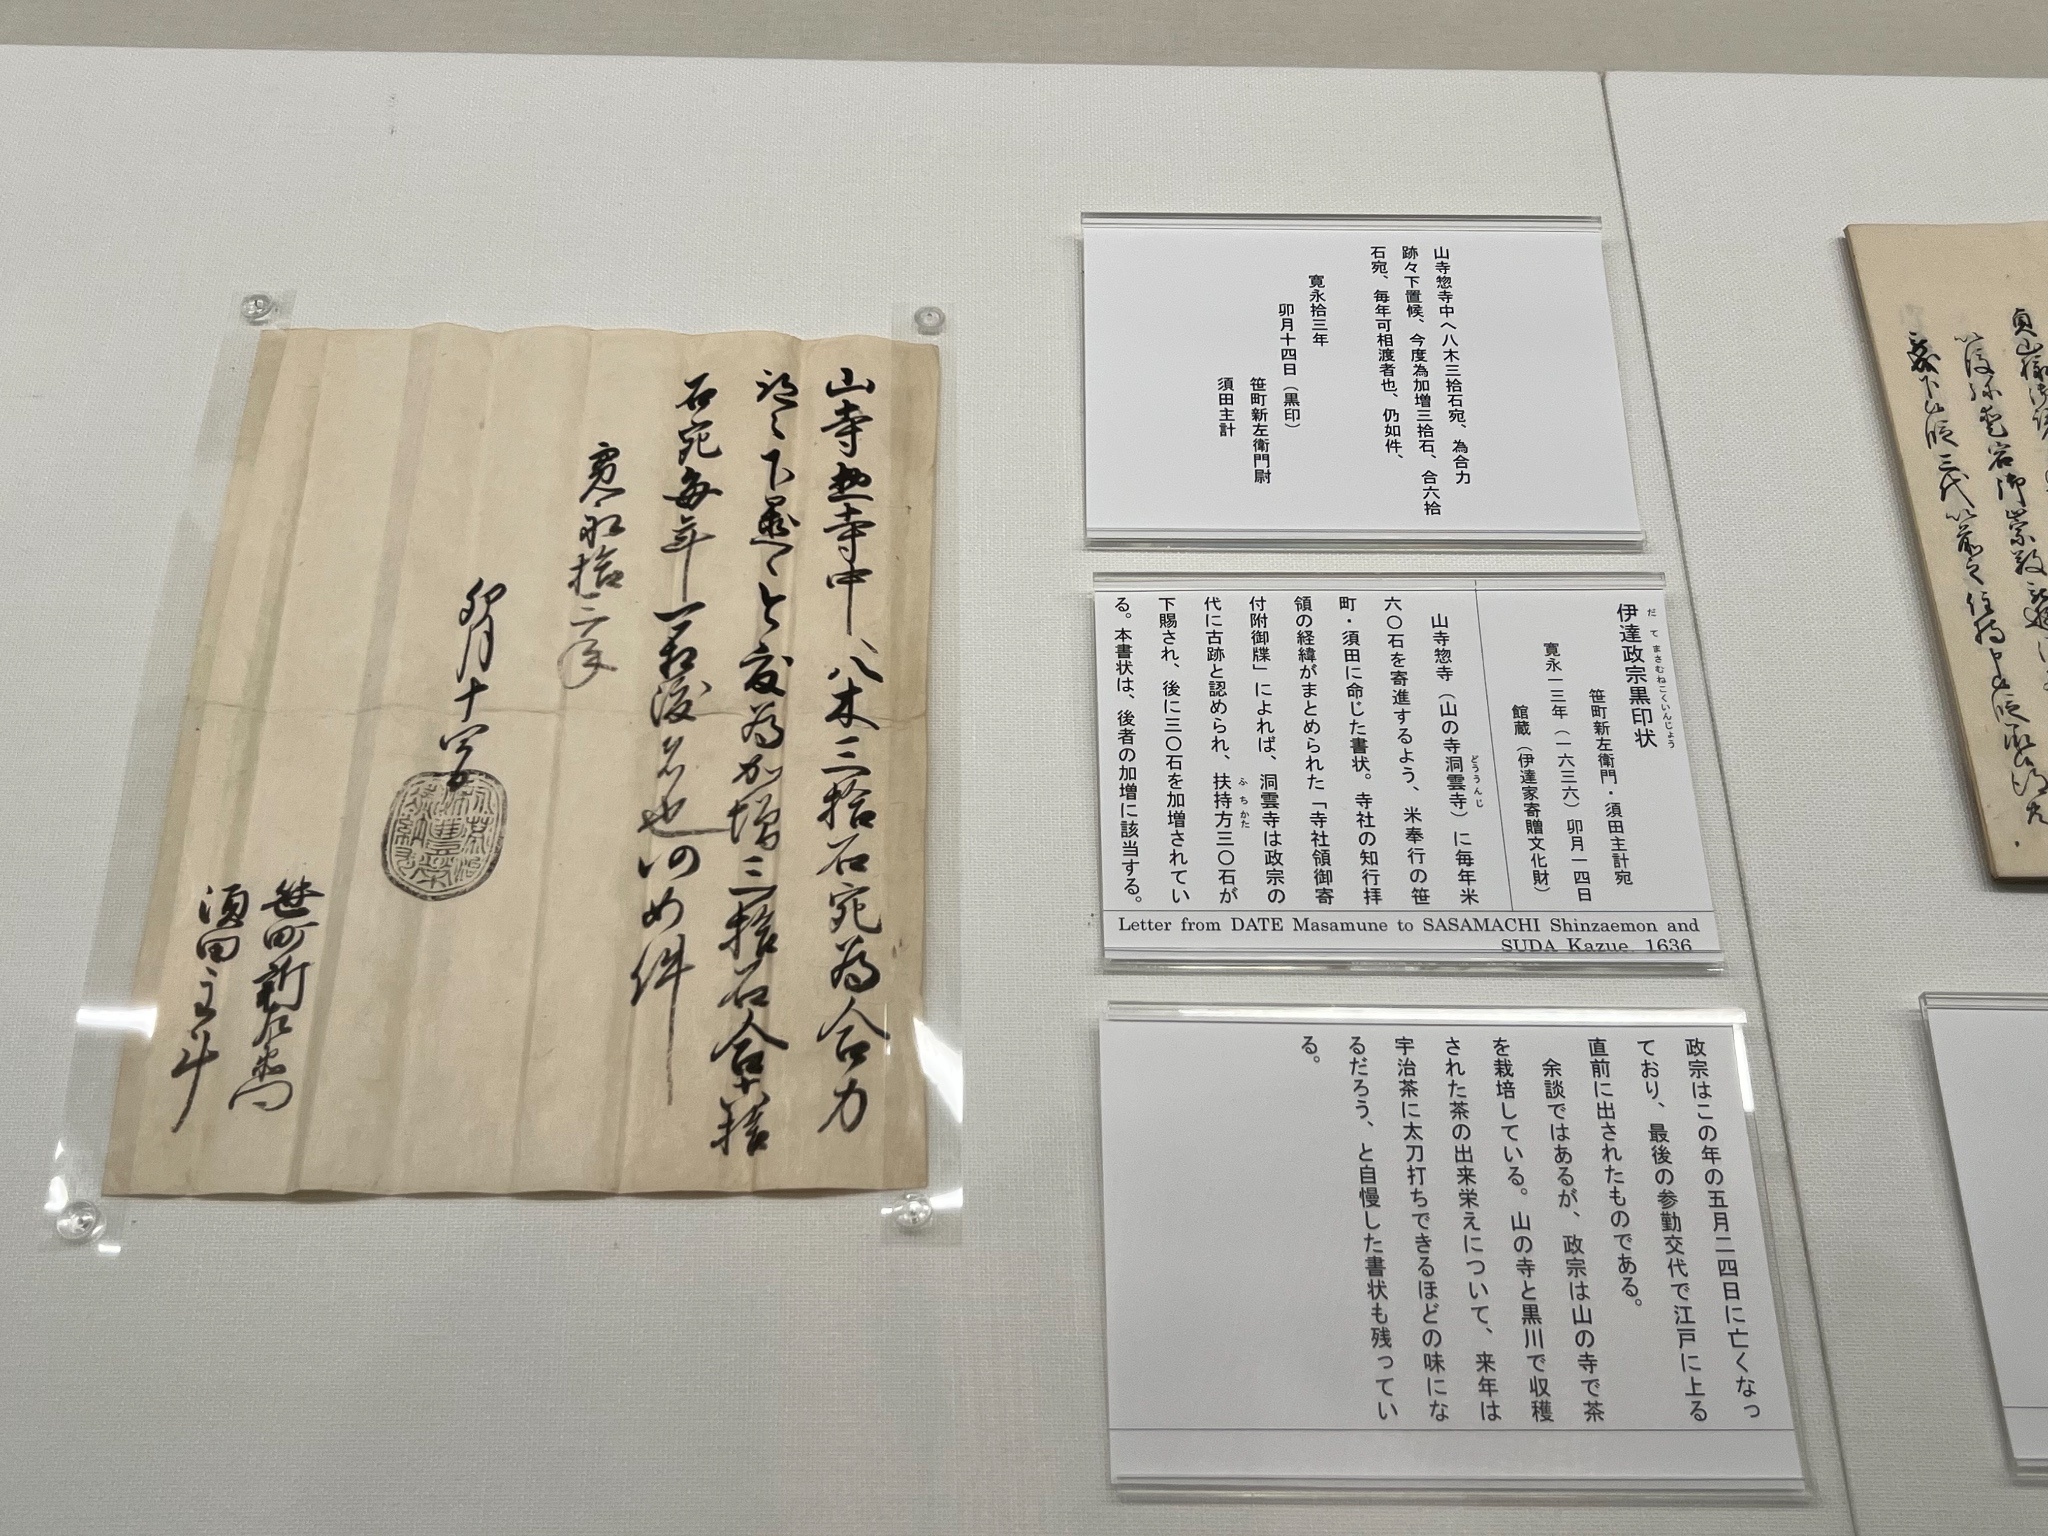 山寺惣寺中へ八木三拾石宛、為合力
跡々下置候、今度為加増三拾石、合六拾
石宛、毎年可相渡者也、仍如件、
寛永拾三年
卯月十四日（黒印）
笹町新左衛門尉
須田主計
伊達政宗黒印状
だてまさむねこくいんじょう
笹町新左衛門・須田主計宛
寛永一三年（一六三六）卯月一四日
館蔵（伊達家寄贈文化財）
山寺惣寺（山の寺洞雲寺）に毎年米
どううんじ
六〇石を寄進するよう、米奉行の笹
町・須田に命じた書状。寺社の知行拝
領の経緯がまとめられた「寺社領御寄
付附御牒」によれば、洞雲寺は政宗の
代に古跡と認められ、扶持方三〇石が
ふちかた
下賜され、後に三〇石を加増されてい
る。本書状は、後者の加増に該当する。
Letter from DATE Masamune to SASAMACHI Shinzaemon and
SUDA Kazue, 1636
政宗はこの年の五月二四日に亡くなっ
ており、最後の参勤交代で江戸に上る
直前に出されたものである。
余談ではあるが、政宗は山の寺で茶
を栽培している。山の寺と黒川で収穫
された茶の出来栄えについて、来年は
宇治茶に太刀打ちできるほどの味にな
るだろう、と自慢した書状も残ってい
る。
山寺惣寺中へ八木三拾石宛為合力
跡々下置候今度為加増三拾石合六拾
石宛毎年可相渡者也仍如件
寛永拾三年
卯月十四日
笹町新左衛門
須田主計